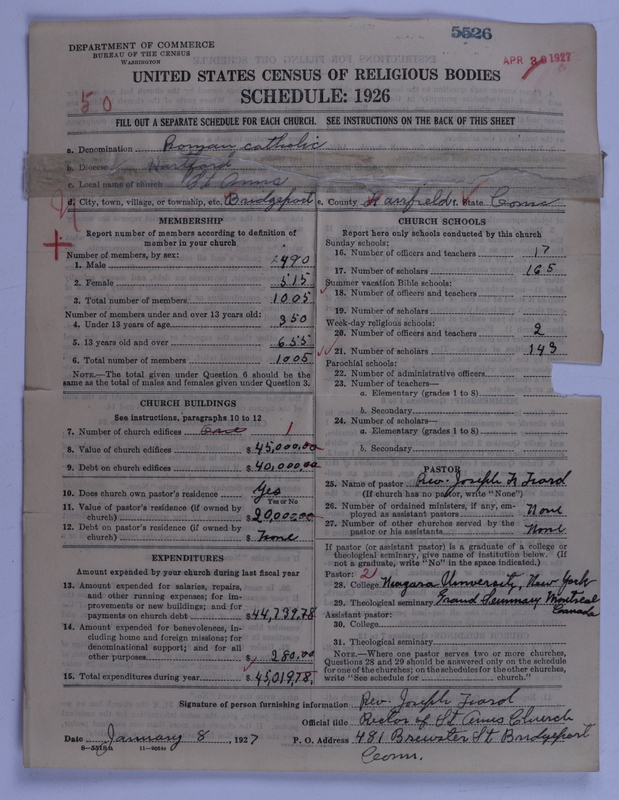 5526
DEPARTMENT OF COMMERCE
BUREAU OF THE CENSUS
WASHINGTON
APR 30 1927
UNITED STATES CENSUS OF RELIGIOUS BODIES
SCHEDULE: 1926
50
FILL OUT A SEPARATE SCHEDULE FOR EACH CHURCH. SEE INSTRUCTIONS ON THE BACK OF THIS SHEET
a. Denomination Roman Catholic
b. Diocese Hartford
c. Local name of church St Anns
d. City, town, village, or township, etc. Bridgeport e. County Fairfield f. State Conn
MEMBERSHIP
Report number of members according to definition of
member in your church
Number of members, by sex:
1. Male 490
2. Female 515
3. Total number of members 1005
Number of members under and over 13 years old:
4. Under 13 years of age 350
5. 13 years old and over 655
6. Total number of members 1005
NOTE.—The total given under Question 6 should be the
same as the total of males and females given under Question 3.
CHURCH BUILDINGS
See instructions, paragraphs 10 to 12
7. Number of church edifices One 1
8. Value of church edifices $45,000.00
9. Debt on church edifices $40,000.00
10. Does church own pastor's residence Yes
Yes or No
11. Value of pastor's residence (if owned by
church) $20,000.00
12. Debt on pastor's residence (if owned by
church) $None
EXPENDITURES
Amount expended by your church during last fiscal year
13. Amount expended for salaries, repairs,
and other running expenses; for im-
provements or new buildings; and for
payments on church debt $44,739.78
14. Amount expended for benevolences, in-
cluding home and foreign missions; for
denominational support; and for all
other purposes $280.00
15. Total expenditures during year $45,019.78
CHURCH SCHOOLS
Report here only schools conducted by this church
Sunday schools:
16. Number of officers and teachers 17
17. Number of scholars 165
Summer vacation Bible schools:
18. Number of officers and teachers
19. Number of scholars
Week-day religious schools:
20. Number of officers and teachers 2
21. Number of scholars 143
Parochial schools:
22. Number of administrative officers
23. Number of teachers—
a. Elementary (grades 1 to 8)
b. Secondary
24. Number of scholars—
a. Elementary (grades 1 to 8)
b. Secondary
PASTOR
25. Name of pastor Rev. Joseph
(If church has no pastor, write "None")
26. Number of ordained ministers, if any, em-
ployed as assistant pastors None
27. Number of other churches served by the
pastor or his assistants None
If pastor (or assistant pastor) is a graduate of a college or
theological seminary, give name of institution below. (If
not a graduate, write "No" in the space indicated.)
Pastor: 21
28. College Niagara University, New York
29. Theological seminary Grand Seminary Montreal
Canada
Assistant pastor:
30. College
31. Theological seminary
NOTE.—Where one pastor serves two or more churches,
Questions 28 and 29 should be answered only on the schedule
for one of the churches; on the schedules for the other churches,
write "See schedule for church."
Signature of person furnishing information Rev. Joseph
Official title Rector of St Anns Church
Date January 8, 1927 P. O. Address 481 Brewster St Bridgeport
Conn.